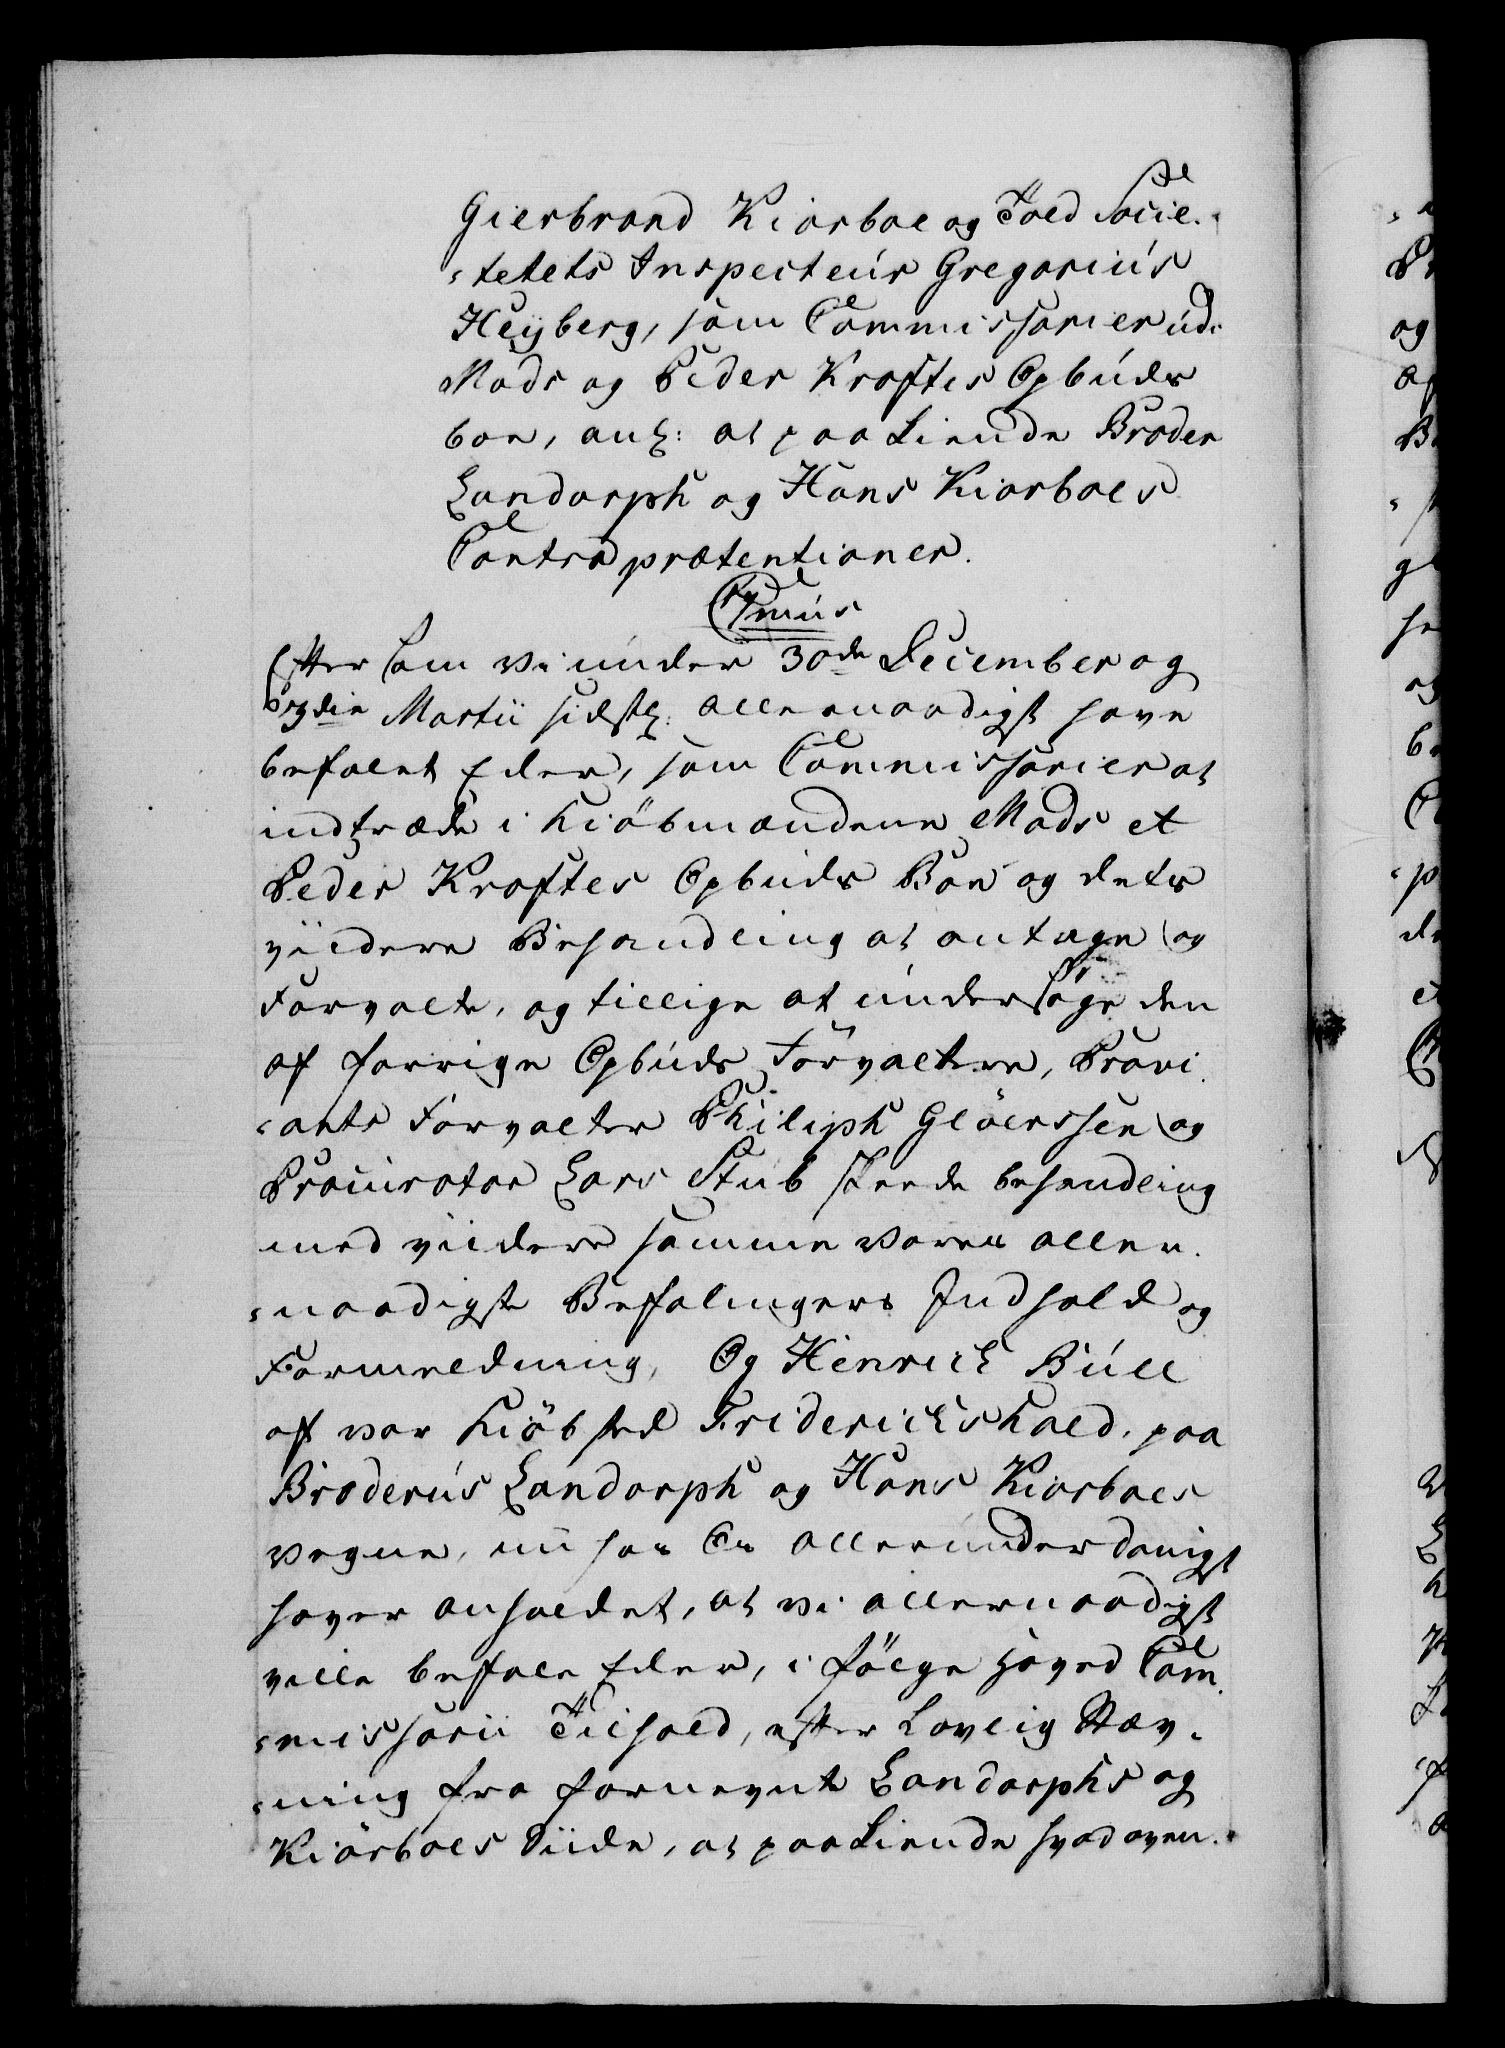 Gierbrand Kiørboe og Told Socie-
-tetets Inspecteur Gregorius
Heyberg, som Commissarier udi
Mads og Peder Kraftes Opbuds
boe, ang: at paa Kiende Broder
Landorph og Hans Kiørboes
Contra prætentioner.
C7mus
Efter som vi under 30de December og
Martii sidstl: allernaadigst have
befalet Eder, som Commissarier at
indtræde i Kiöbmændene Mads et
Peder Kraftes Opbuds Boe og dets
viidere Behandling at antage og
Forvalte, og tillige at undersøge den
af forrige Opbuds Forvaltere, Provi-
-ants Forvalter Philiph Glöerssen og
Procurator Lars Stub skeede behandling
med viidere samme vores aller-
-naadigste Befalingers Indhold og
Formelding, Og Henrich Bull
af vor Kiöbsted Friderichshald, paa
Broderus Landorph og Hans Kiørboes
vegne, nu for Os allerunderdanigst
haver anholdet, at vi allernaadigst
ville befale Eder, i fölge hoved Com-
-missorii Tilhold, efter Lovlig Stæv-
-ning fra fornevnte Landorphs og
Kiörboes Siide, at paa Kiende hvad oven-